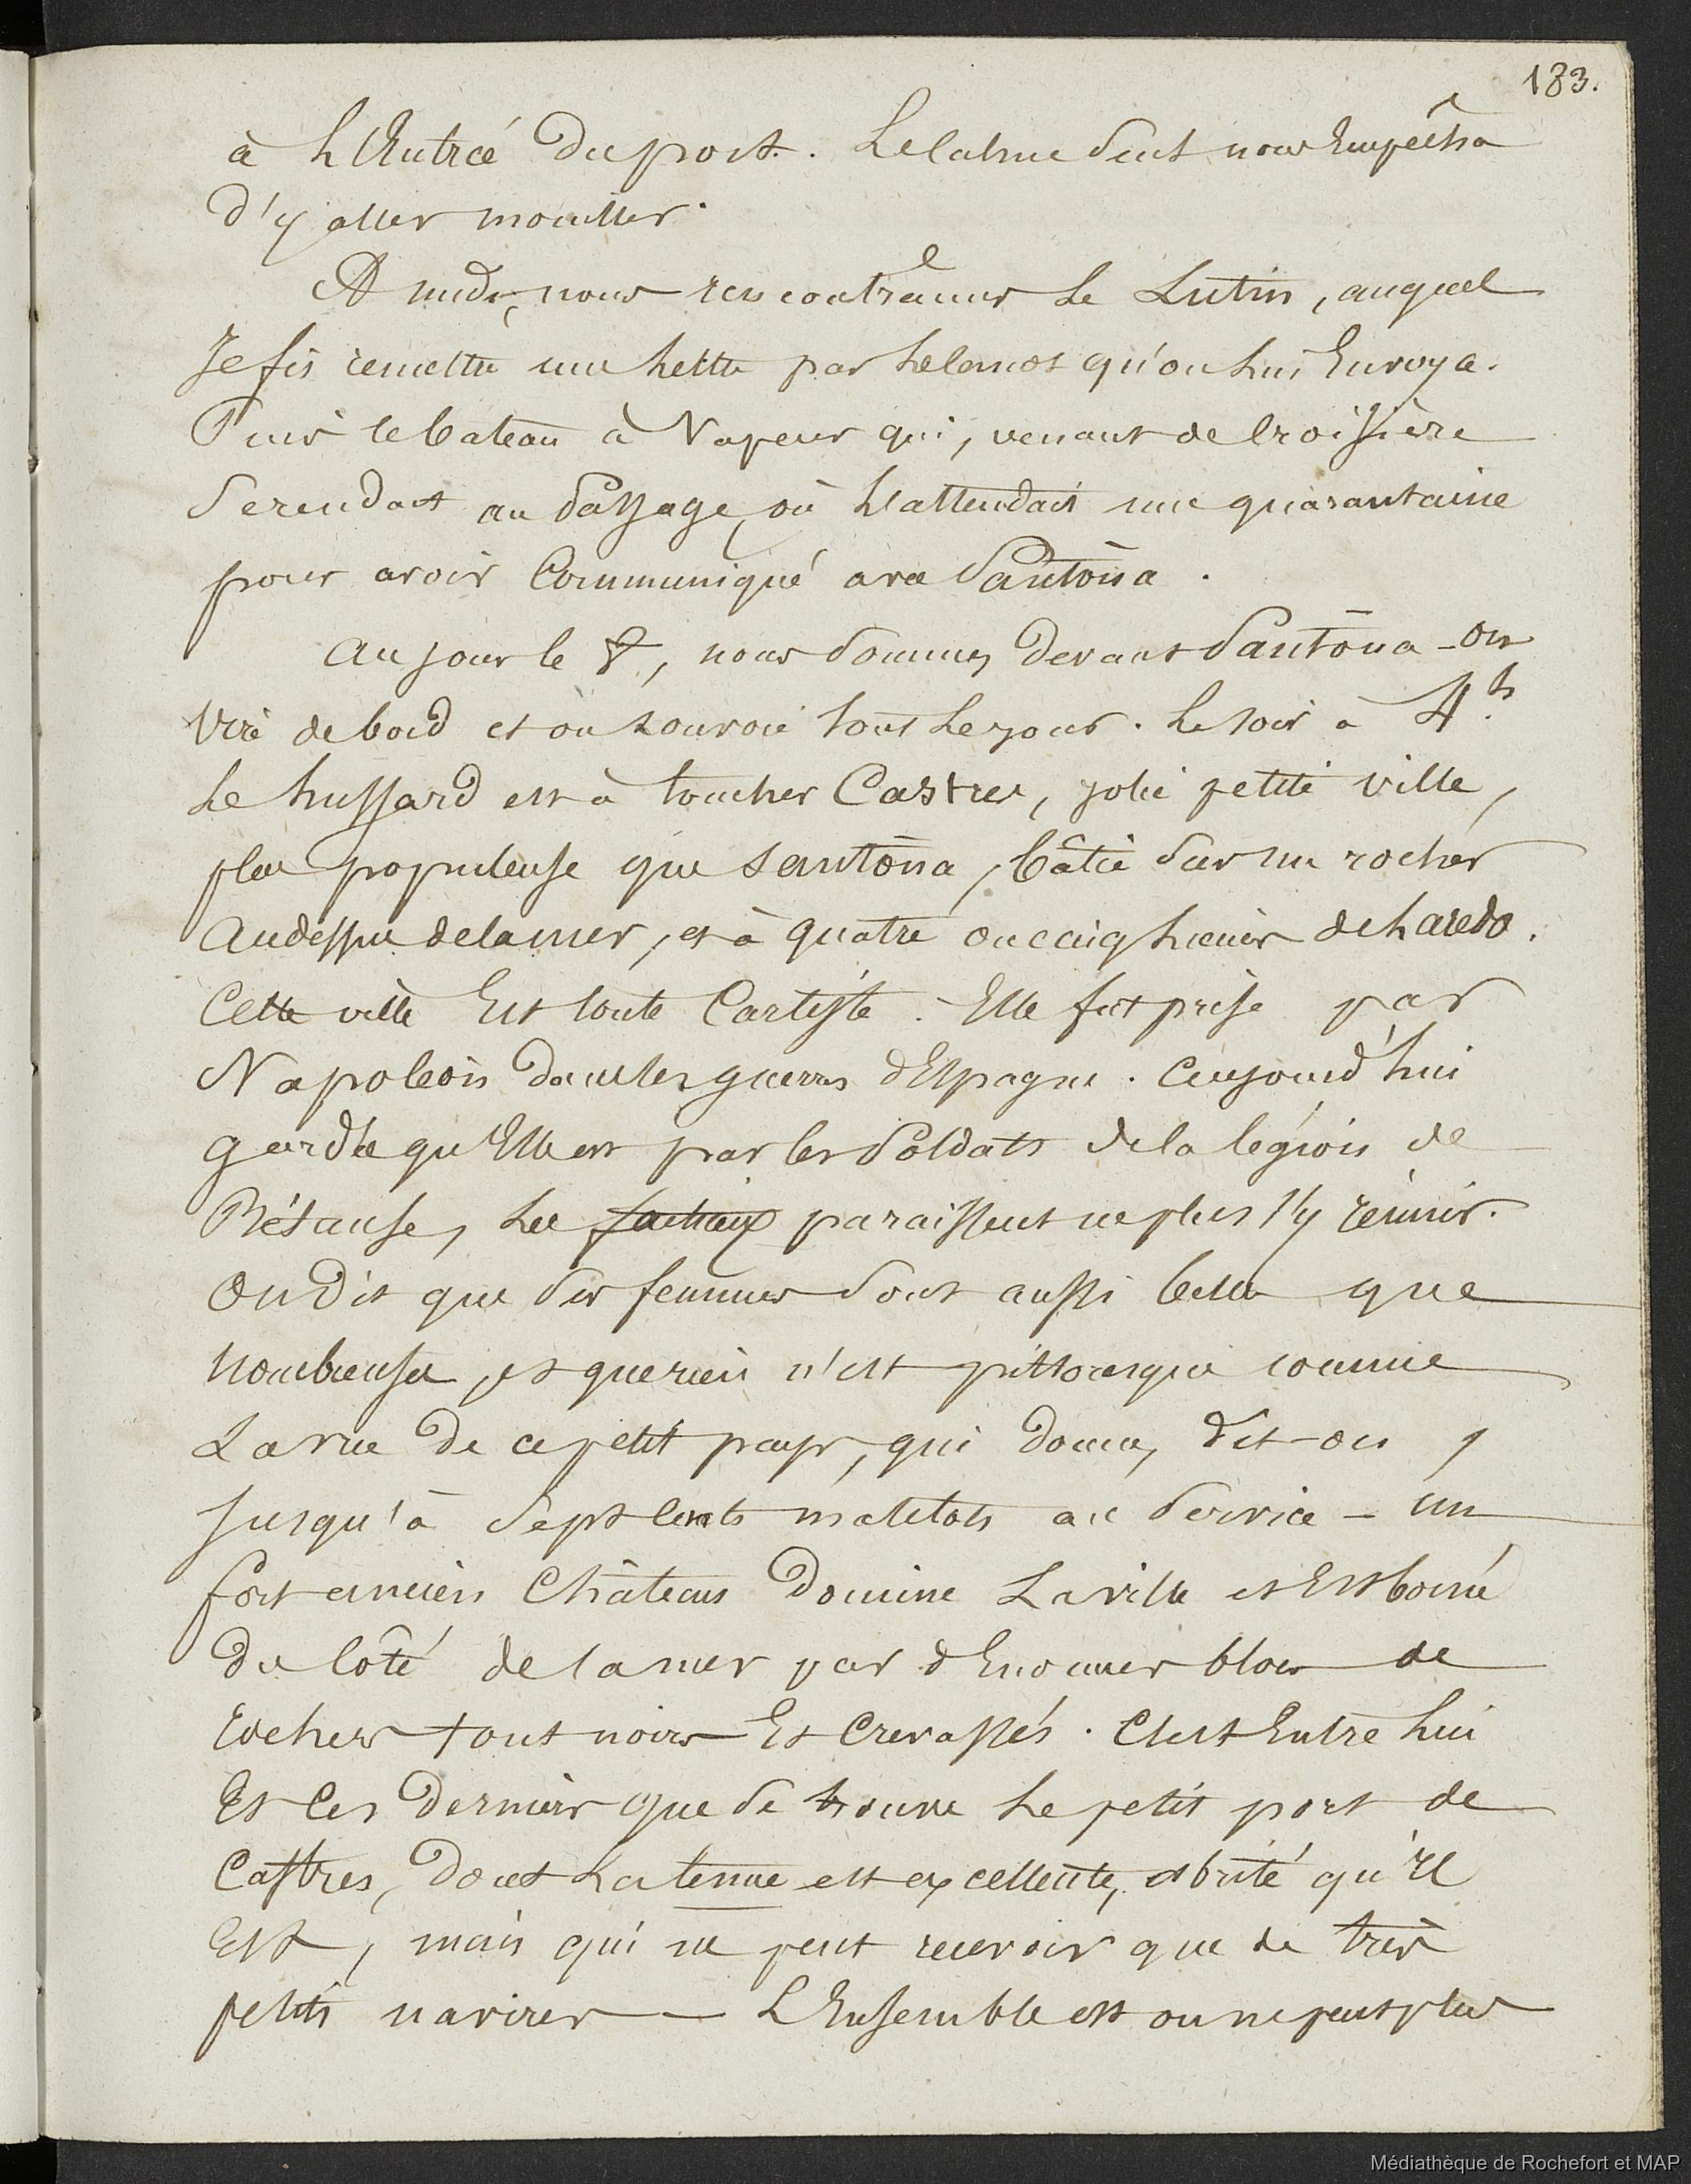 183.
à L'Entrée du port. Le calme seul nous Empêcha
d'y aller mouiller.
A midi, nous rencontrâmes le Lutin, auquel
Je fis remettre une lettre par le canot qu'on lui Envoya.
Puis le bateau à Vapeur qui, venant de Croisière
Se rendait au Passage, où L'attendait une quarantaine
pour avoir Communiqué avec Santôna.
Au jour le 8, nous sommes devant Santôna - on
Vire de bord et on louvoie tout Le jour. Le soir à 4.h
Le hussard est à toucher Castres, jolie petite ville,
plus populeuse que Santôna, bâtie sur un rocher
Au dessus de la mer, et à quatre ou cinq lieues de Laredo.
Cette ville Est toute Carliste. Elle fut prise par
Napoléon dans les guerres d'Espagne. Aujourd'hui
gardée qu'Elle est par les Soldats de la légion de
Bétanse, Les factieux paraissent ne plus s'y réunir.
On dit que ses femmes sont aussi belles que
Nombreuses, et que rien n'est pittoresque comme
La vue de ce petit pays, qui donne, dit-on,
Jusqu'à Sept Cents matelots au Service - un
fort ancien Château domine La ville et Est borné
du Côté de la mer par d'Enormes blocs de
rochers tout noirs Et Crevassés. C'est Entre Lui
Et Ces derniers que se trouve Le petit port de
Castres, dont La tenue est excellente, abrité qu'Il
Est, mais qui ne peut recevoir que de très
petits navires — L'Ensemble est on ne peut plus
Médiathèque de Rochefort et MAP